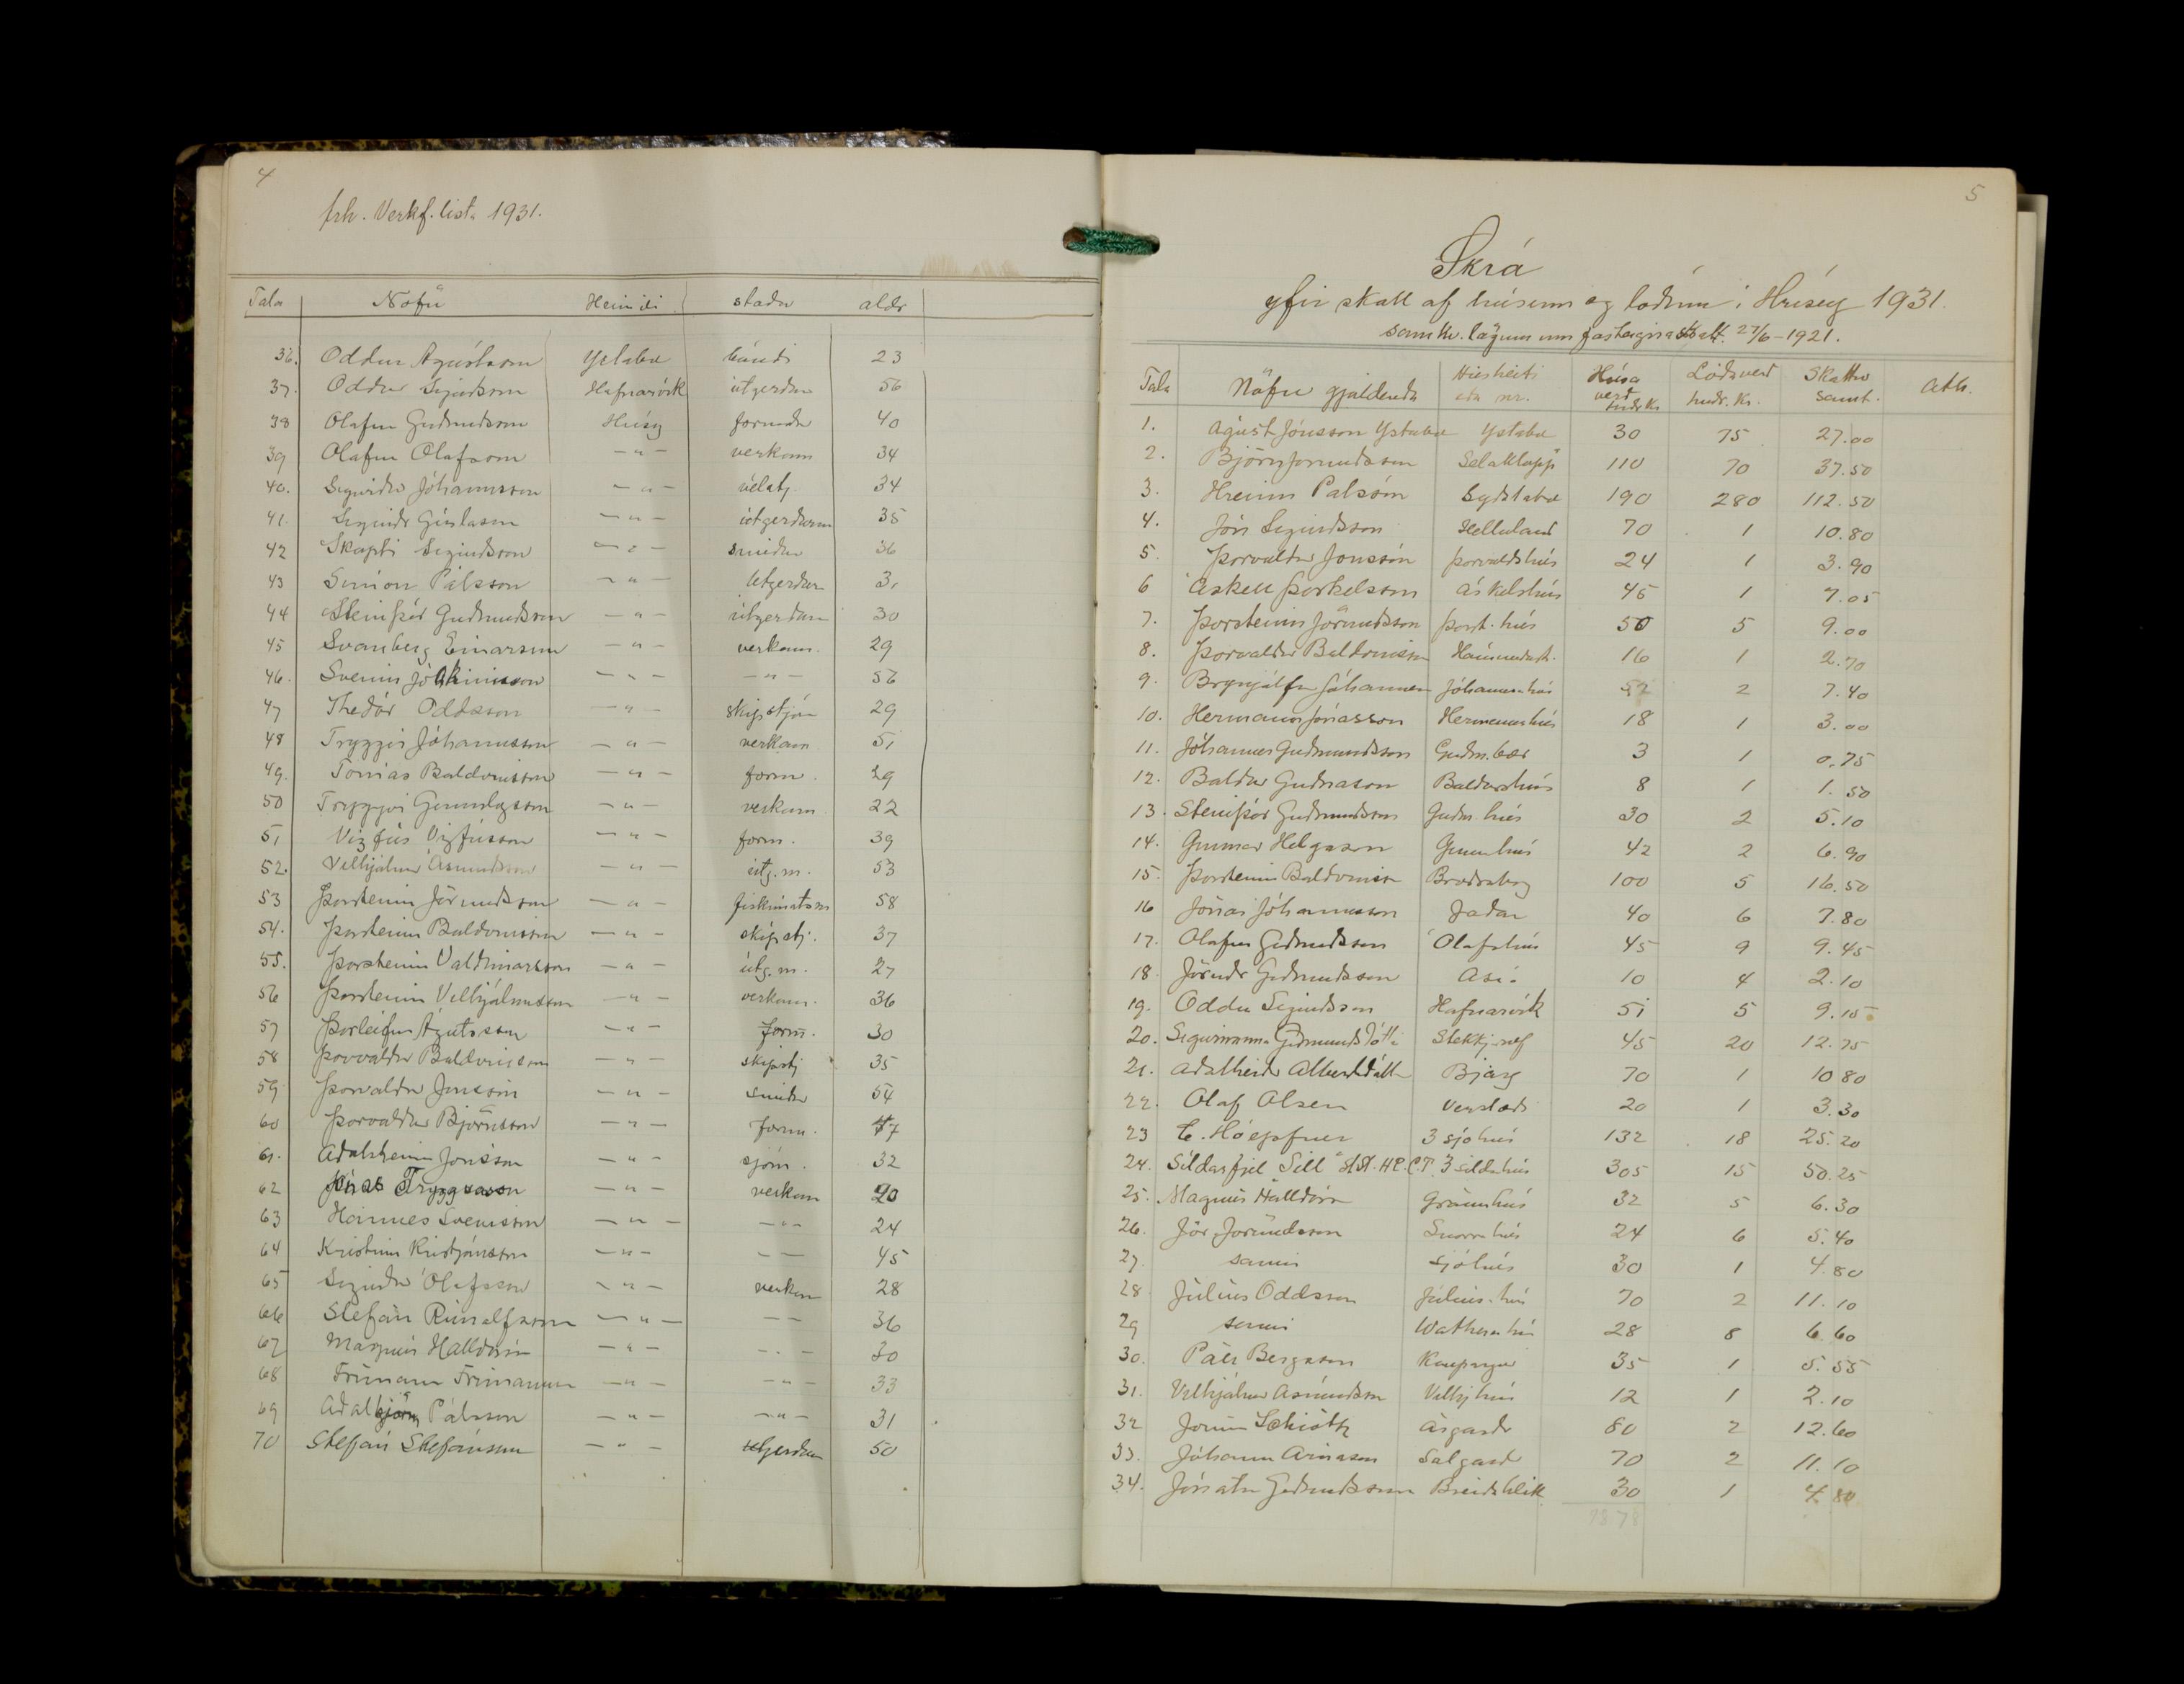 4
frh. Verkf. lista 1931.
Tala Nöfn Heimili staða aldr
36. Oddur Ágústsson Ystabæ bóndi 23
37. Oddur Sigurðsson Hafnarvík útgerðm 56
38 Olafur Guðmundsson Hrísey formaðr 40
39 Olafur Olafsson —"— verkam 34
40. Sigurður Jóhannsson —"— vélstj. 34
41. Sigurðr Gíslason —"— útgerðarm 35
42 Skapti Sigurðsson —"— smiður 36
43 Símon Pálsson —"— útgerðarm 31
44 Steinþór Guðmundsson —"— útgerðarm 30
45 Svanberg Einarsson —"— verkam. 29
46. Sveinn Jóakimsson —"— —"— 56
47 Thedór Oddsson —"— skipstjóri 29
48 Tryggvi Jóhannsson —"— verkam 51
49. Tómas Baldvinsson —"— form. 29
50 Tryggvi Gunnlagsson —"— verkam 22
51 Vigfús Vigfússon —"— form. 39
52. Vilhjálmr Ásmundsson —"— útg.m. 53
53 Þorsteinn Jörundsson —"— fiskimatsm 58
54. Þorsteinn Baldvinsson —"— skipstj. 37
55. Þorsteinn Valdimarsson —"— útg.m. 27
56 Þorsteinn Vilhjálmsson —"— verkam. 36
57 Þorleifur Ágústsson —"— form. 30
58 Þorvaldur Baldvinsson —"— skipstj 35
59 Þorvaldur Jónsson —"— smiður 54
60 Þorvaldur Björnsson —"— form. 47
61. Aðalsteinn Jónsson —"— sjóm. 32
62 Jónas Tryggvason —"— verkam 20
63 Hannes Sveinsson —"— —"— 24
64 Kristinn Kristjánsson —"— —— 45
65 Sigurður Olafsson —"— verkam 28
66 Stefán Rúnólfsson —"— —— 36
67 Magnús Halldórss —"— —.— 30
68 Frímann Frímannsson —"— —"— 33
69 Aðalbjörn Pálsson —"— —"— 31
70 Stefán Stefánsson —"— útgerðarm 50
5
Skrá
yfir skatt af húsum og lóðum í Hrísey 1931.
samkv. lögum um fasteignaskatt 27/6-1921.
Tala Nöfn gjaldenda Húsheiti eða nr. Húsa verð hndr Kr Lóðaverð hndr. Kr. Skattur samt. Ath.
1. Ágúst Jónsson Ystabæ Ystabæ 30 75 27.00
2. Björn Jörundsson Selaklöpp 110 70 37.50
3. Hreinn Pálsson Sydstabæ 190 280 112.50
4. Jón Sigurðsson Helluland 70 1 10.80
5. Þorvaldur Jónsson Þorvaldshús 24 1 3.90
6 Áskell Þorkelsson Áskelshús 45 1 7.05
7. Þorsteinn Jörundsson Þorst. hús 50 5 9.00
8. Þorvaldur Baldvinsson 16 1 2.70
9. Brynjólfur Jóhannesson Jóhanneshús 52 2 7.40
10. Hermann Jónasson Hermannshús 18 1 3.00
11. Jóhannes Guðmundsson Guðm.bær 3 1 0.75
12. Baldur Guðnason Baldurshús 8 1 1.50
13. Steinþór Guðmundsson Guðm. hús 30 2 5.10
14. Gunnar Helgason Gunn.hús 42 2 6.90
15. Þorsteinn Baldvinss Bræðraborg 100 5 16.50
16 Jónas Jóhannsson Jaðar 40 6 7.80
17. Olafur Guðmundsson Ólafshús 45 9 9.45
18 Jörundr Guðmundsson 10 4 2.10
19. Oddur Sigurðsson Hafnarvík 51 5 9.15
20. Sigurmunda Guðmundsdóttir Stekkjarnef 45 20 12.75
21. Aðalheiður Albertsdóttir Bjarg 70 1 10 80
22. Olaf Olsen Verstæði 20 1 3.30
23 C. Höepfner 3 sjóhús 132 18 25.20
24. Síldarfjel Sill St.St. HP.C.T. 3 síldahús 305 15 50.25
25. Magnús Halldórss 32 5 6.30
26. Jör. Jörundsson Snorrahús 24 6 5.40
27. sami sjóhús 30 1 4.80
28 Júlíus Oddsson Júlíus.hús 70 2 11.10
29 sami Wathneshús 28 8 6.60
30. Páll Bergsson Kaupangur 35 1 5.55
31. Vilhjálmur Ásmundsson Vilhj.hús 12 1 2.10
32 Jörun Schiöth Ásgarðr 80 2 12.60
33. Jóhann Árnason Salgarð 70 2 11.10
34. Jónatan Guðmundsson Breiðablik 30 1 4.80
1878